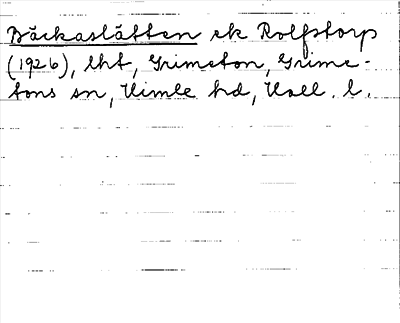 Bäckaslätten ek Rolfstorp
(1926), lht, Grimeton, Grime-
tons sn, Himle hd, Hall. l.